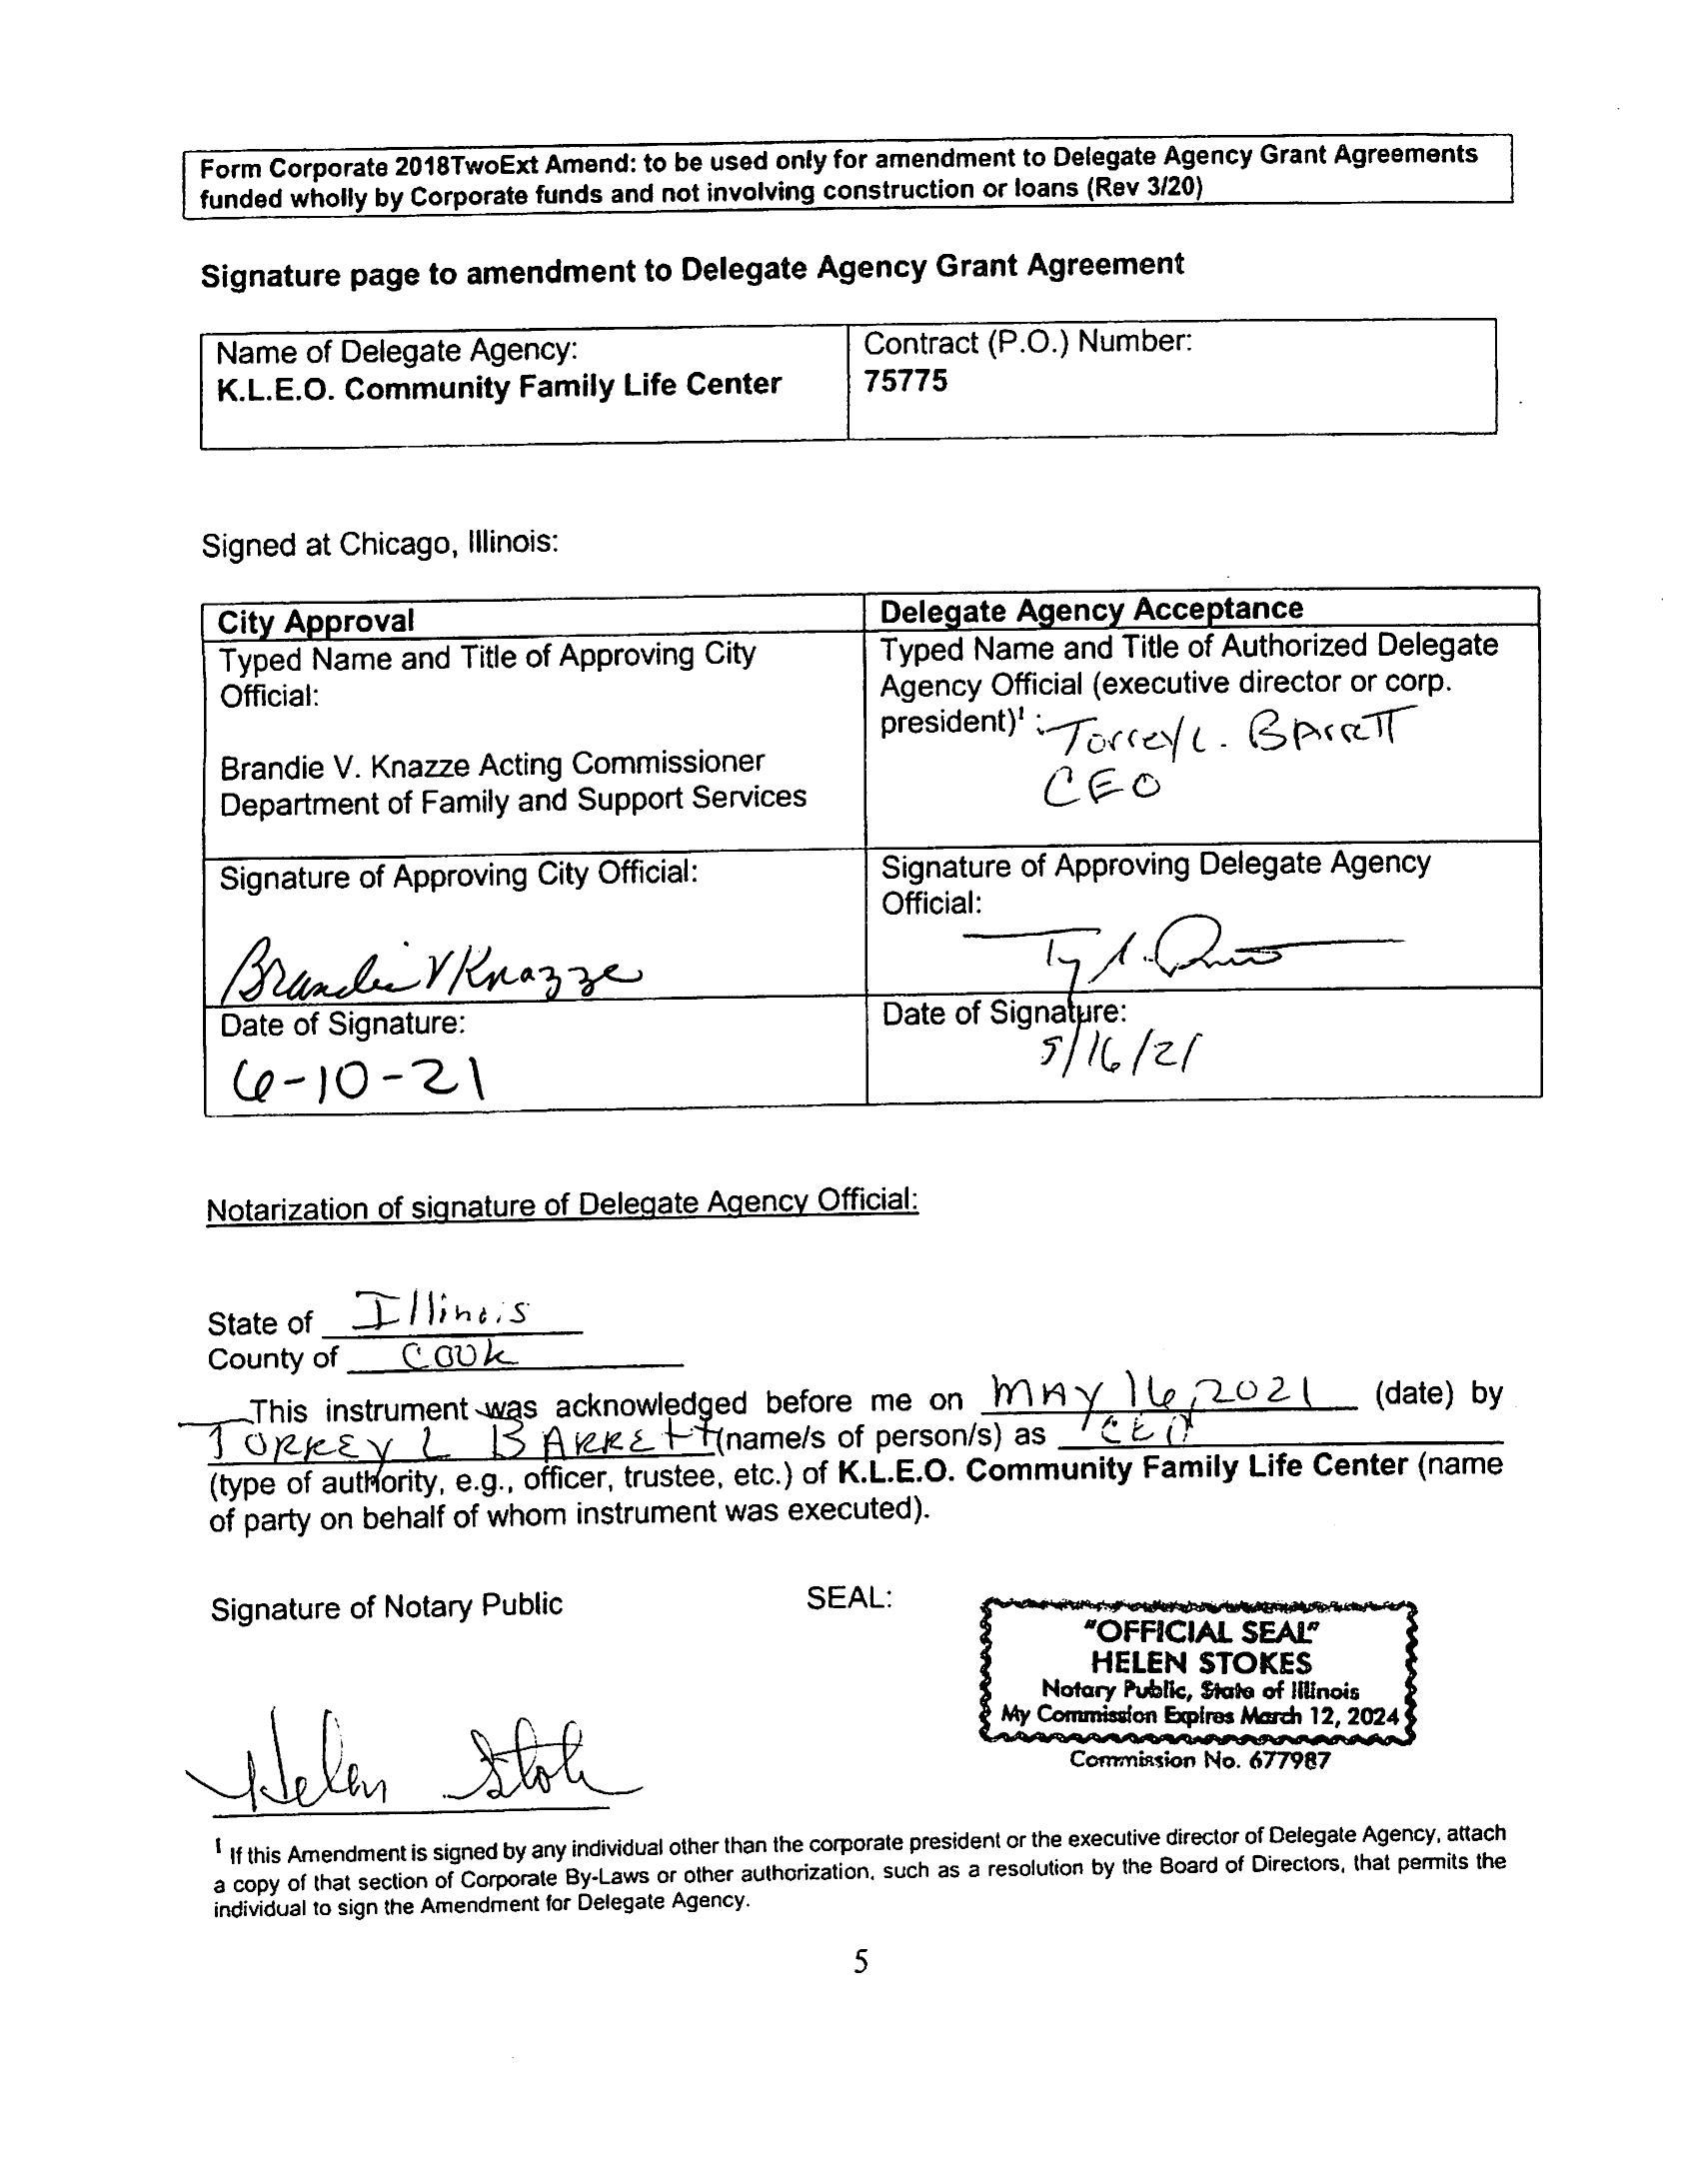 Form Corporate 2018TwoExt Amend: to be used only for amendment to Delegate Agency Grant Agreements
funded wholly by Corporate funds and not involving construction or loans (Rev 3/20)
Signature page to amendment to Delegate Agency Grant Agreement
Name of Delegate Agency:
K.L.E.O. Community Family Life Center
Contract (P.O.) Number:
75775
Signed at Chicago, Illinois:
City Approval
Typed Name and Title of Approving City
Official:
Brandie V. Knazze Acting Commissioner
Department of Family and Support Services
Delegate Agency Acceptance
Typed Name and Title of Authorized Delegate
Agency Official (executive director or corp.
president)¹ : Torrey L. Barrett
CEO
Signature of Approving City Official:
Brandie V Knazze
Signature of Approving Delegate Agency
Official:
Date of Signature:
6-10-21
Date of Signature:
5/16/21
Notarization of signature of Delegate Agency Official:
State of Illinois
County of Cook
This instrument was acknowledged before me on MAY 16, 2021 (date) by
TORREY L BARRETT (name/s of person/s) as CEO
(type of authority, e.g., officer, trustee, etc.) of K.L.E.O. Community Family Life Center (name
of party on behalf of whom instrument was executed).
Signature of Notary Public
SEAL:
"OFFICIAL SEAL"
HELEN STOKES
Notary Public, State of Illinois
My Commission Expires March 12, 2024
Commission No. 677987
Helen Stokes
¹ If this Amendment is signed by any individual other than the corporate president or the executive director of Delegate Agency, attach
a copy of that section of Corporate By-Laws or other authorization, such as a resolution by the Board of Directors, that permits the
individual to sign the Amendment for Delegate Agency.
5